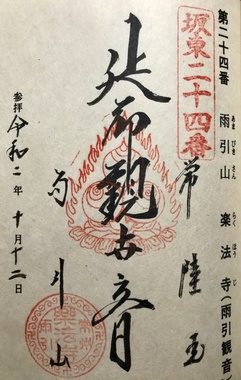 第二十四番 雨引山 楽法寺(雨引観音
あまびきさん らくほうじ
坂東二十四番
常陸国
延命觀世音
雨引山
参拝 令和二年十月十二日